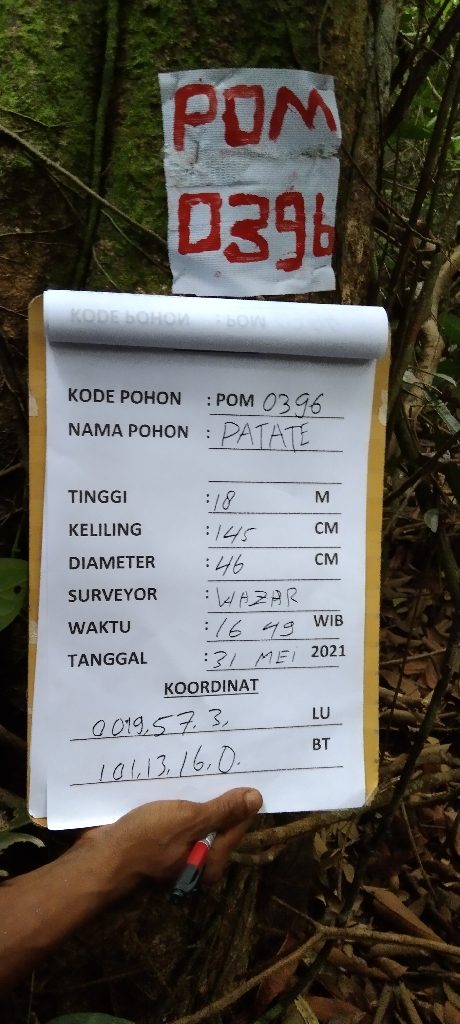 POM
0396
KODE POHON : POM
KODE POHON : POM 0396
NAMA POHON : PATATE
TINGGI : 18 M
KELILING : 145 CM
DIAMETER : 46 CM
SURVEYOR : WAZAR
WAKTU : 16 49 WIB
TANGGAL : 31 MEI 2021
KOORDINAT
0019.57.3. LU
101.13.16.0. BT